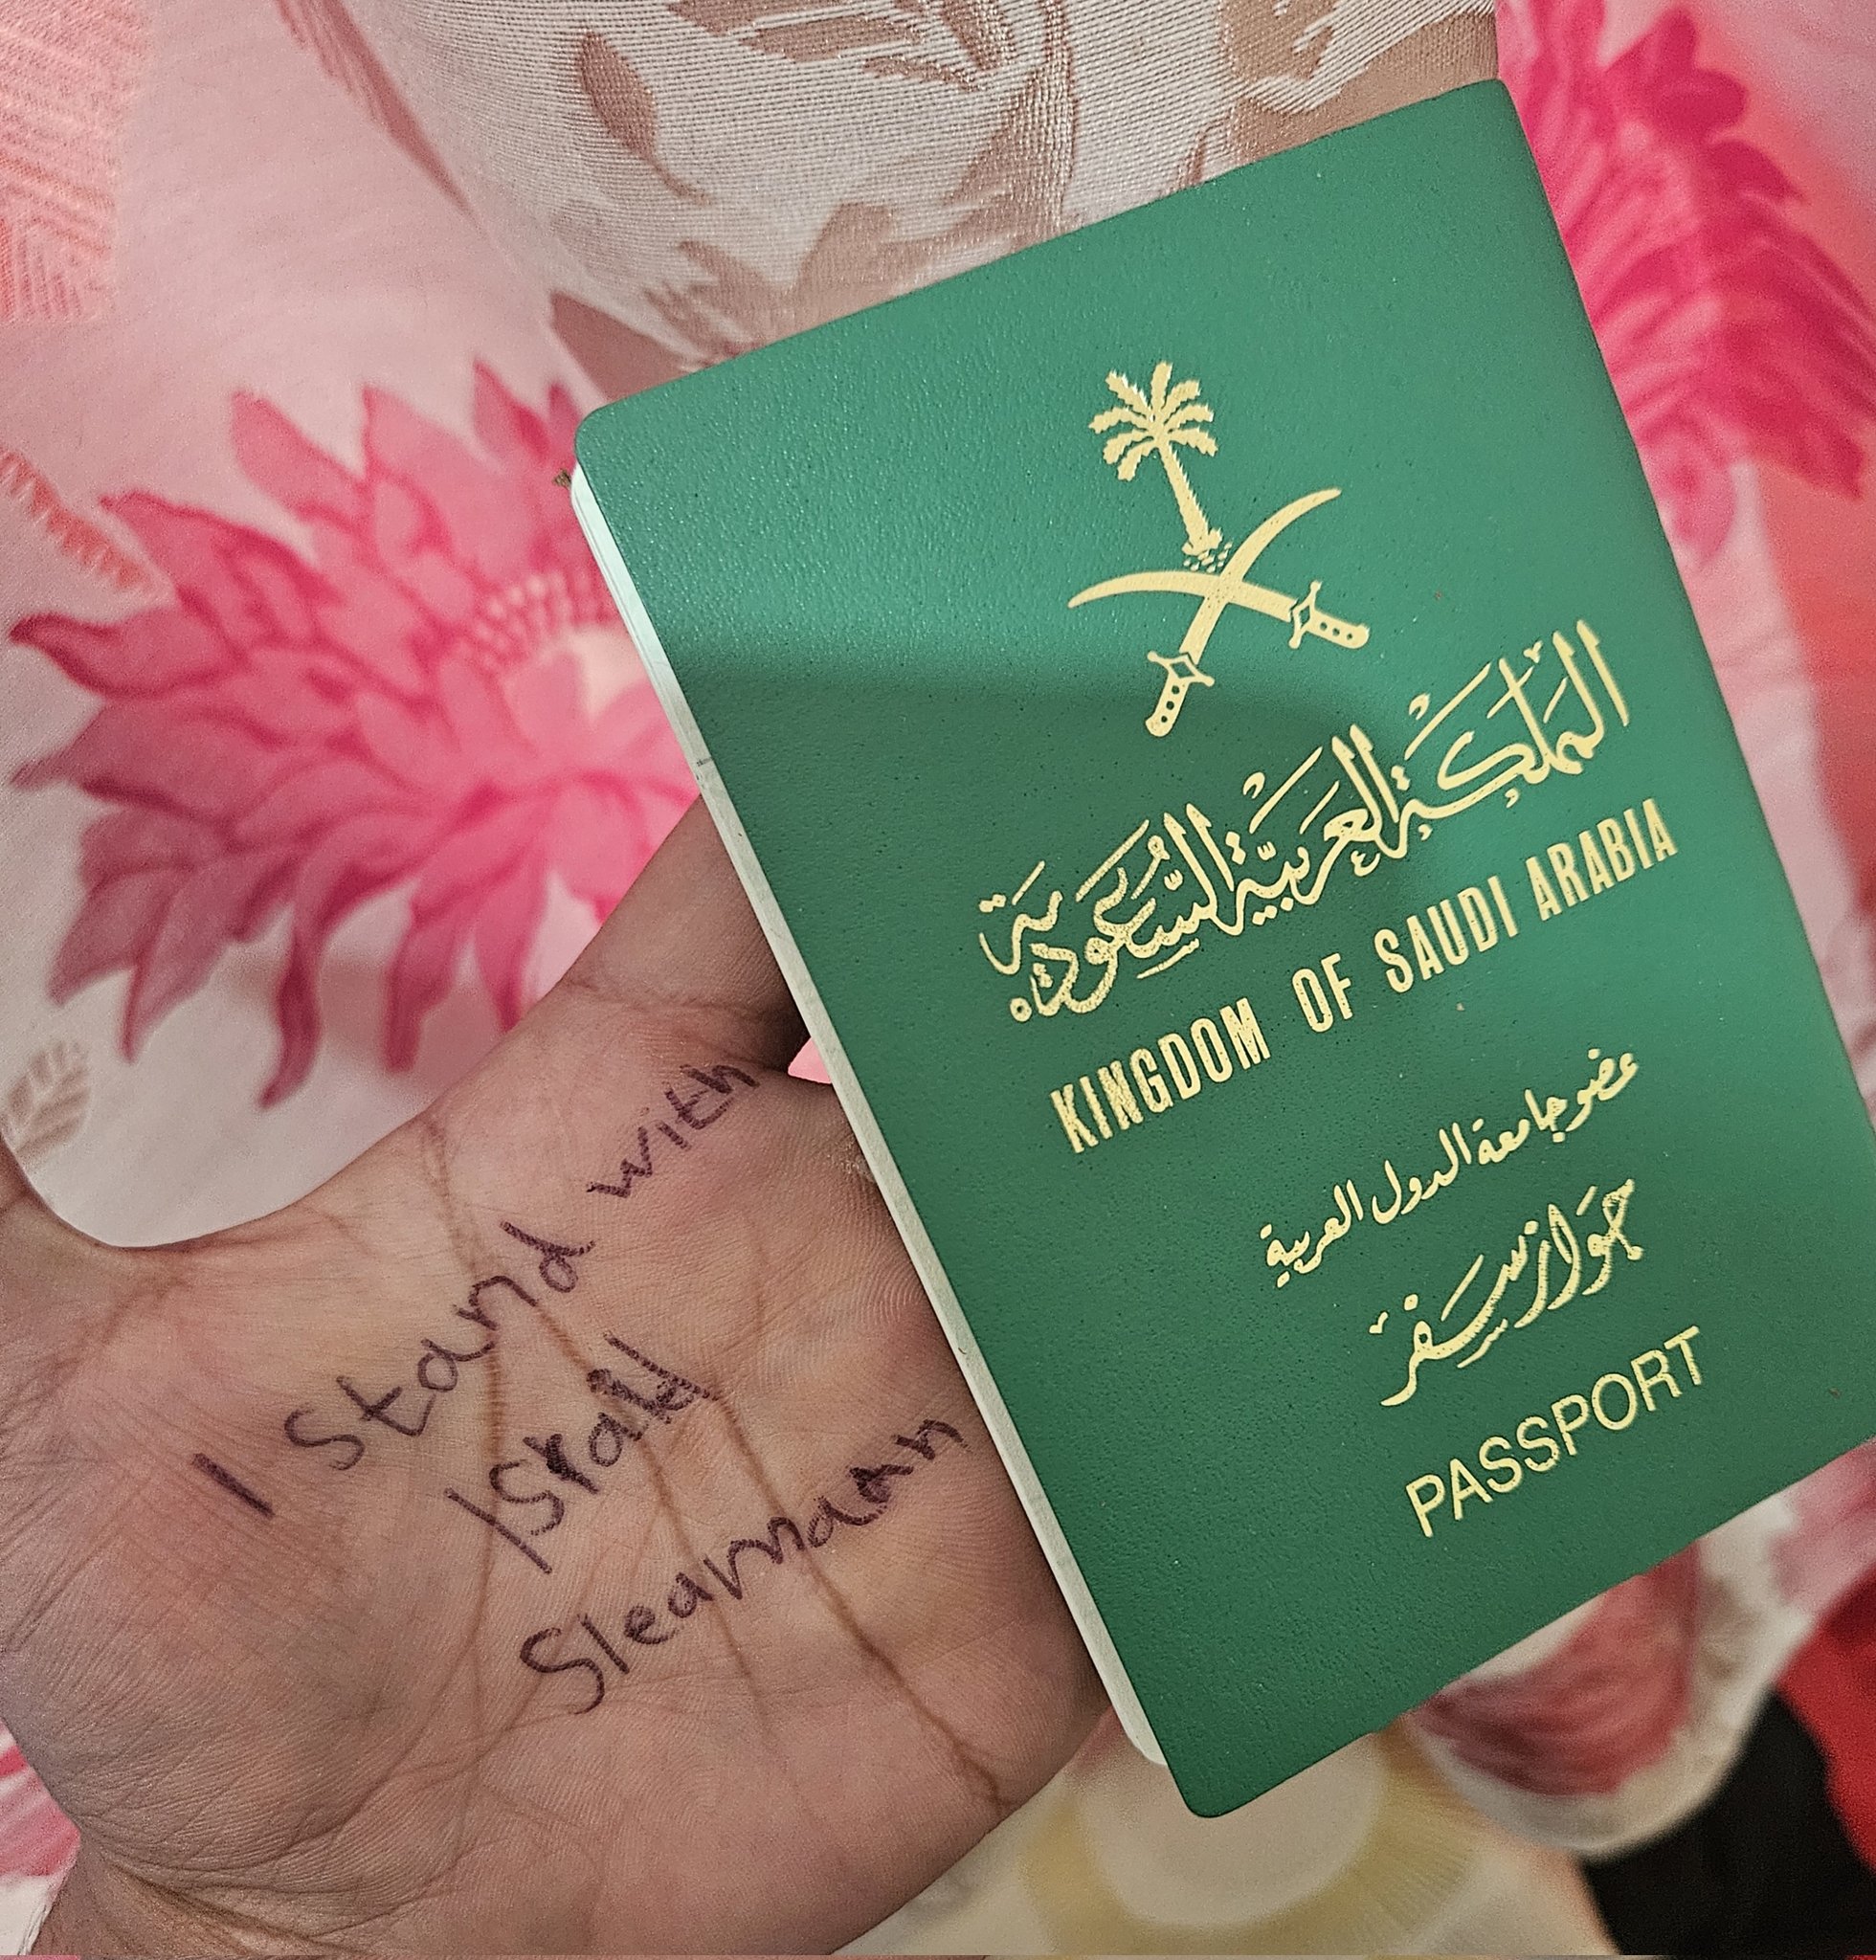 المملكة العربية السعودية
KINGDOM OF SAUDI ARABIA
عضو جامعة الدول العربية
جواز سفر
PASSPORT
I stand with
Israel
Sleamaan